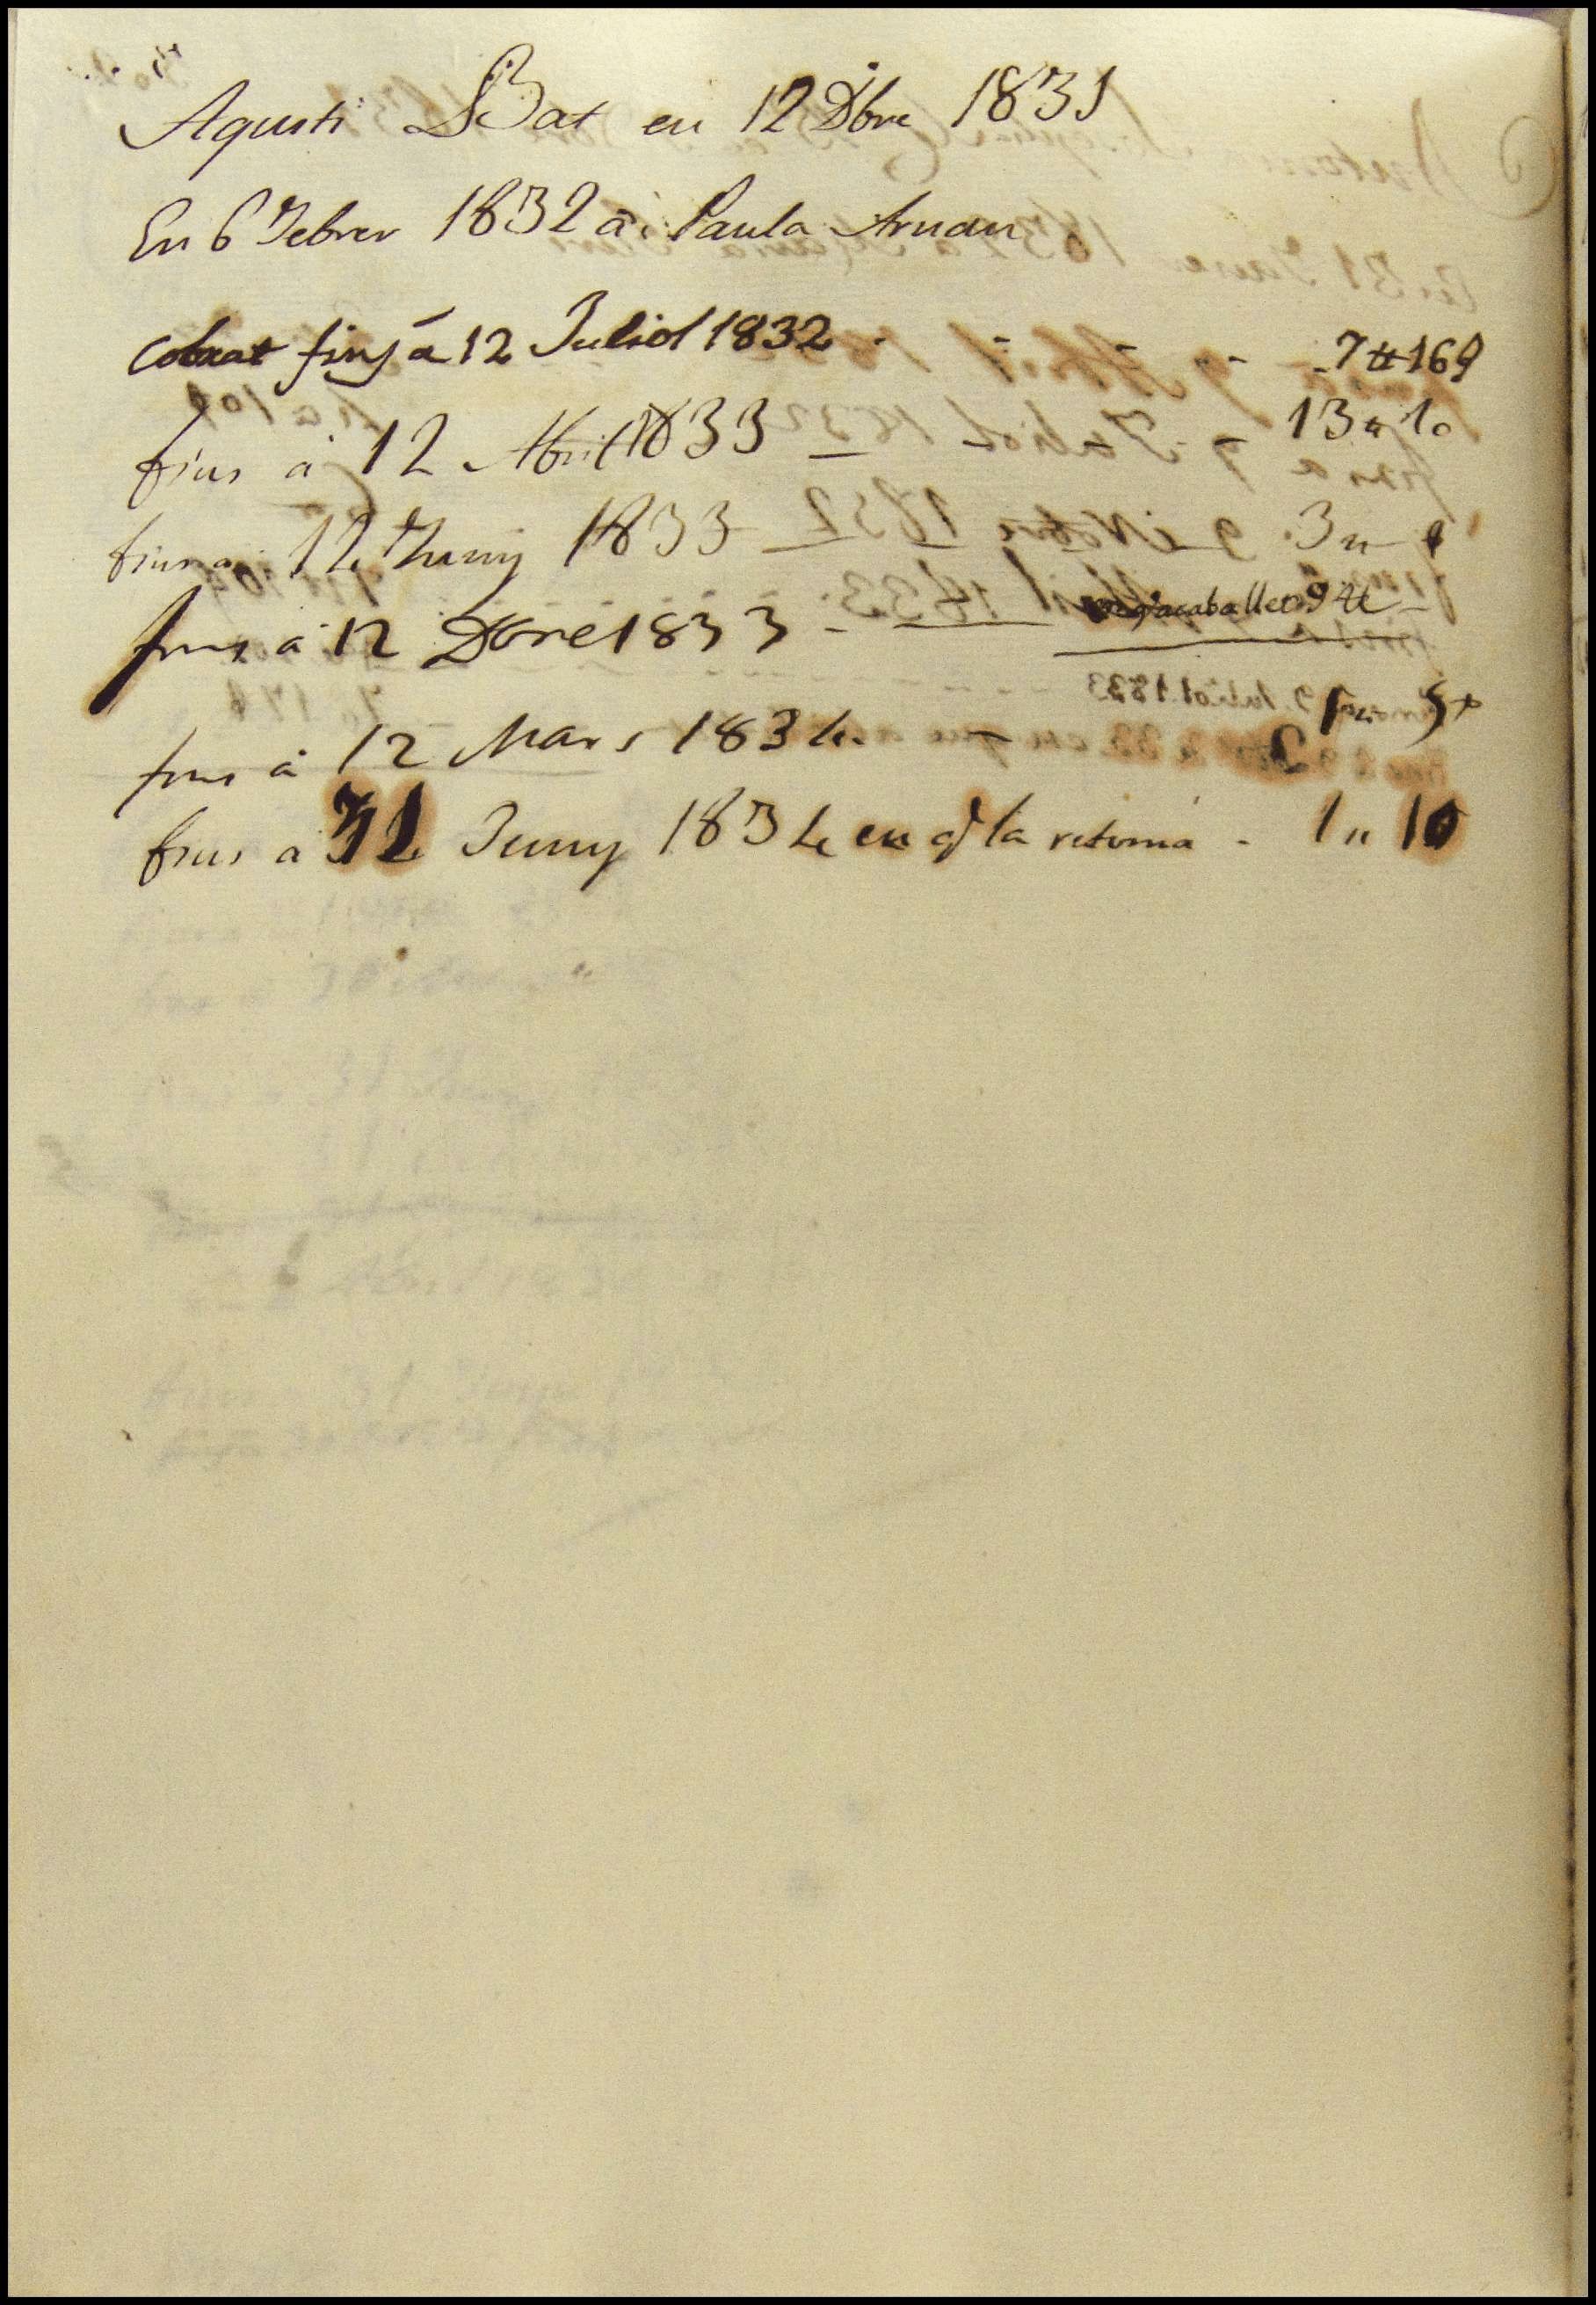 Agusti Bat en 12 Dbre 1831
En 6 Febrer 1832 á Paula Arnau
Cobrat fins á 12 Juliol 1832 . - - - - 7 tt 16 s
fins á 12 Abril 1833 — - 13 " 10
fins a 12 Juny 1833 — — 3 "
fins á 12 Dbre 1833 - — caballer 9 tt
fins á 12 Mars 1834 -
fins a 31 Juny 1834 en q la retorná - 1 " 10